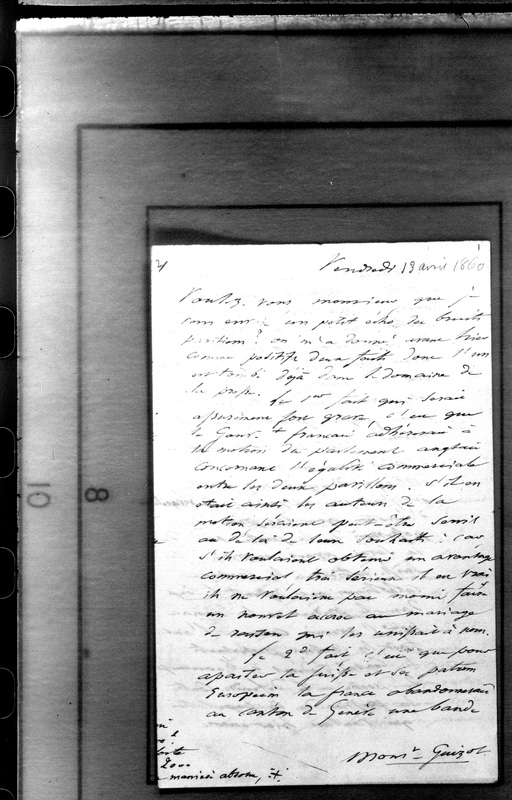 Vendredi 13 avril 1860
Voulez vous monsieur que je
vous envoie un petit écho des bruits
parisiens ? on m'a donné avant hier
comme positifs deux faits dont l'un
est tombé déjà dans le domaine de
la presse. Le 1er fait qui serait
assurément fort grave, c'est que
le Gouv.t français adhérerait à
la motion du parlement anglais
concernant l'égalité commerciale
entre les deux pavillons. S'il en
était ainsi les auteurs de la
motion seraient peut-être servis
au delà de leurs souhaits : car
s'ils voulaient obtenir un avantage
commercial très sérieux il est vrai
ils ne voulaient pas moins faire
un nouvel accroc au mariage
de raison qui les unissait à nous.
Le 2d fait c'est que pour
apaiser la Suisse et ses patrons
Européens la france abandonnerait
au canton de Genève une bande
Monsr Guizot